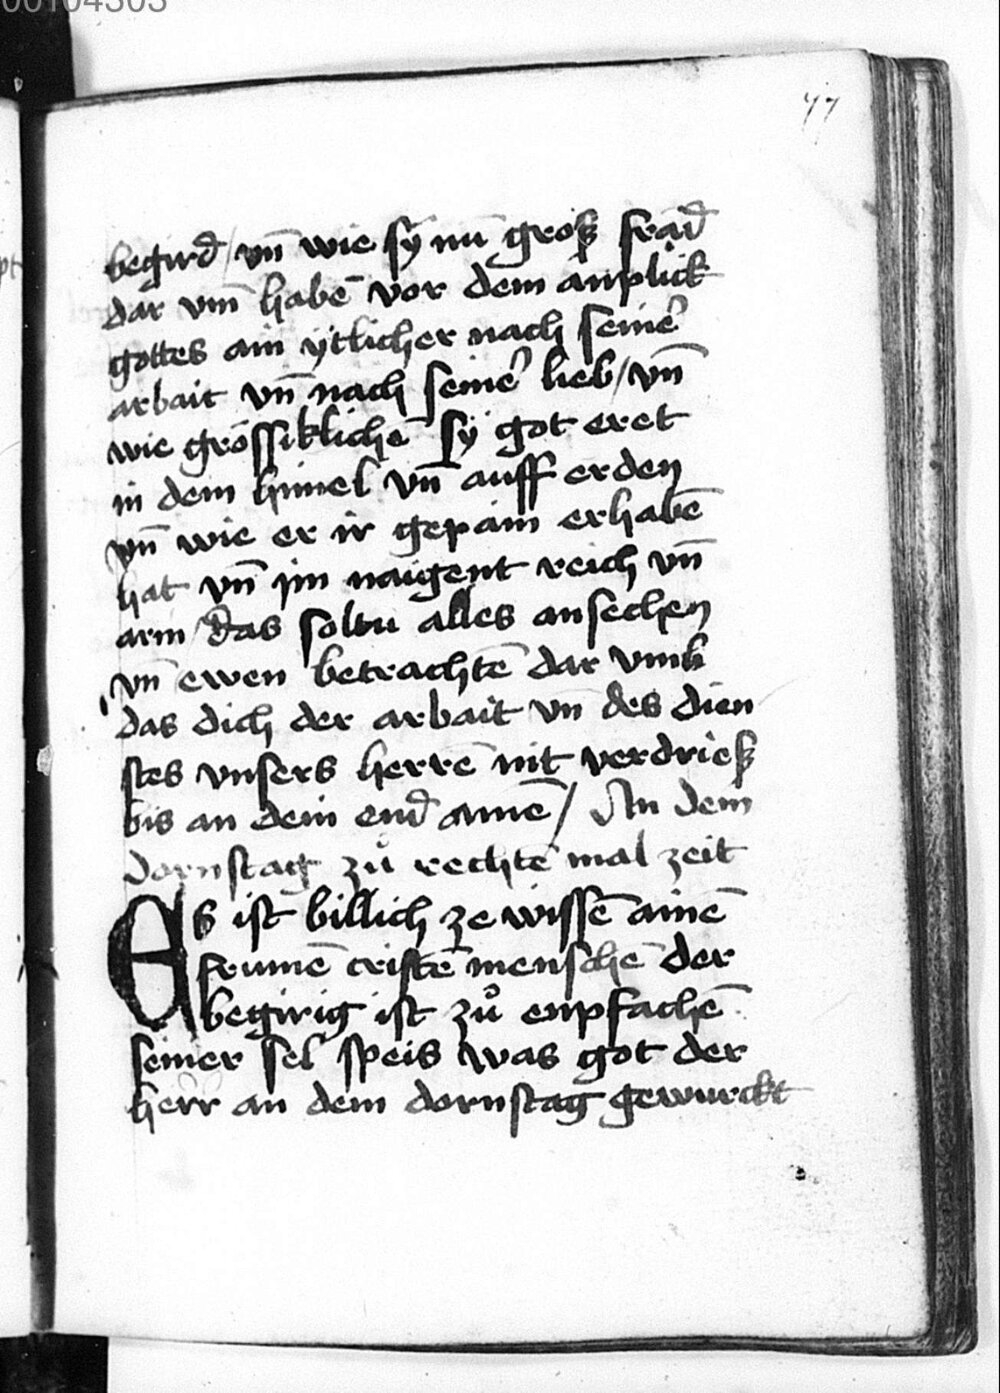 00104303
77
begird / vn̄ wie sÿ nū groß fräd
dar vm̄ habē vor dem anplick
gottes ain ÿtlicher nach seiner
arbait vn̄ nach seiner lieb / vn̄
wie grössiklichē sÿ got eret
in dem himel vn̄ auff erden
vn̄ wie er ir gepain erhabē
hat vn̄ im naigent reich vn̄
arm / das soltu alles ansechen
vn̄ ewen betrachtē dar vmb
das dich der arbait vn̄ des dien
stes vnsers herrē nit verdrieß
bis an dein end amē / An dem
dornstag zů rechtē mal zeit
Es ist billich ze wissē ainē
frumē cristē menschē der
begirig ist zů enpfachē
seiner sel speis was got der
herr an dem dornstag gewurckt